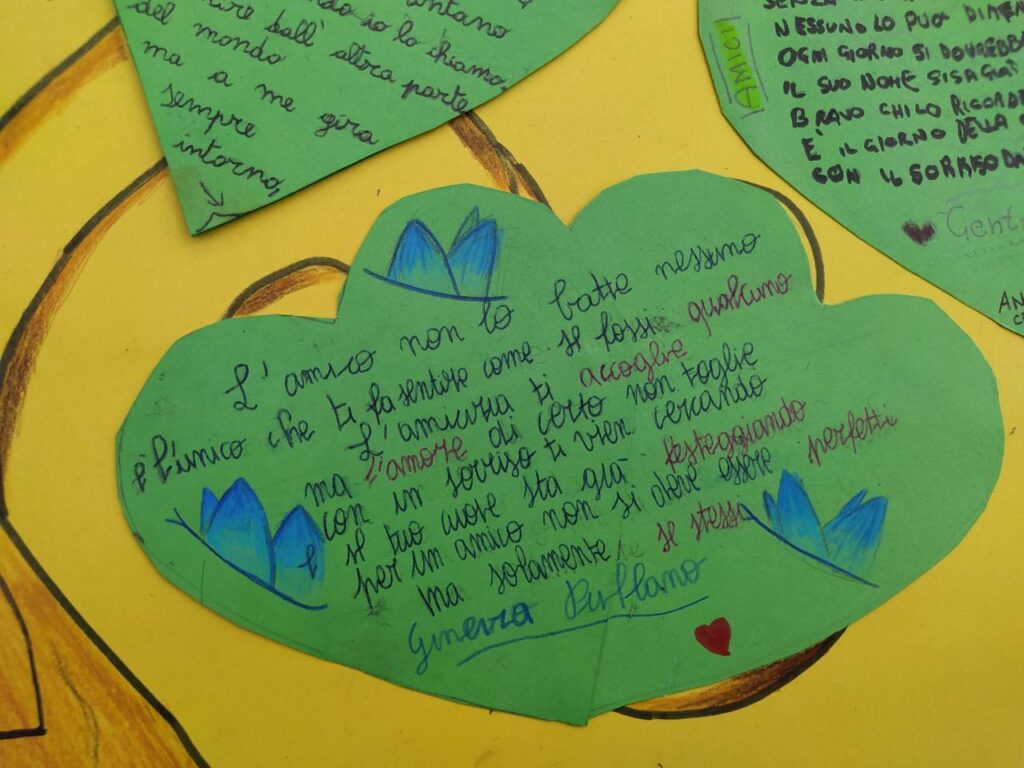 lontano
io lo chiamo,
dall' altra parte
del mondo
ma a me gira
sempre
intorno,
NESSUNO LO PUÒ
OGNI GIORNO SI DOVREBBE
IL SUO NOME
BRAVO CHI LO
È IL GIORNO DELLA
CON IL SORRISO
AMICI
L'amico non lo batte nessuno
è l'unico che ti fa sentire come se fossi qualcuno
L'amicizia ti accoglie
ma l'amore di certo non toglie
con un sorriso ti vien cercando
e il tuo cuore sta già festeggiando
per un amico non si deve essere perfetti
ma solamente se stessi
Ginevra